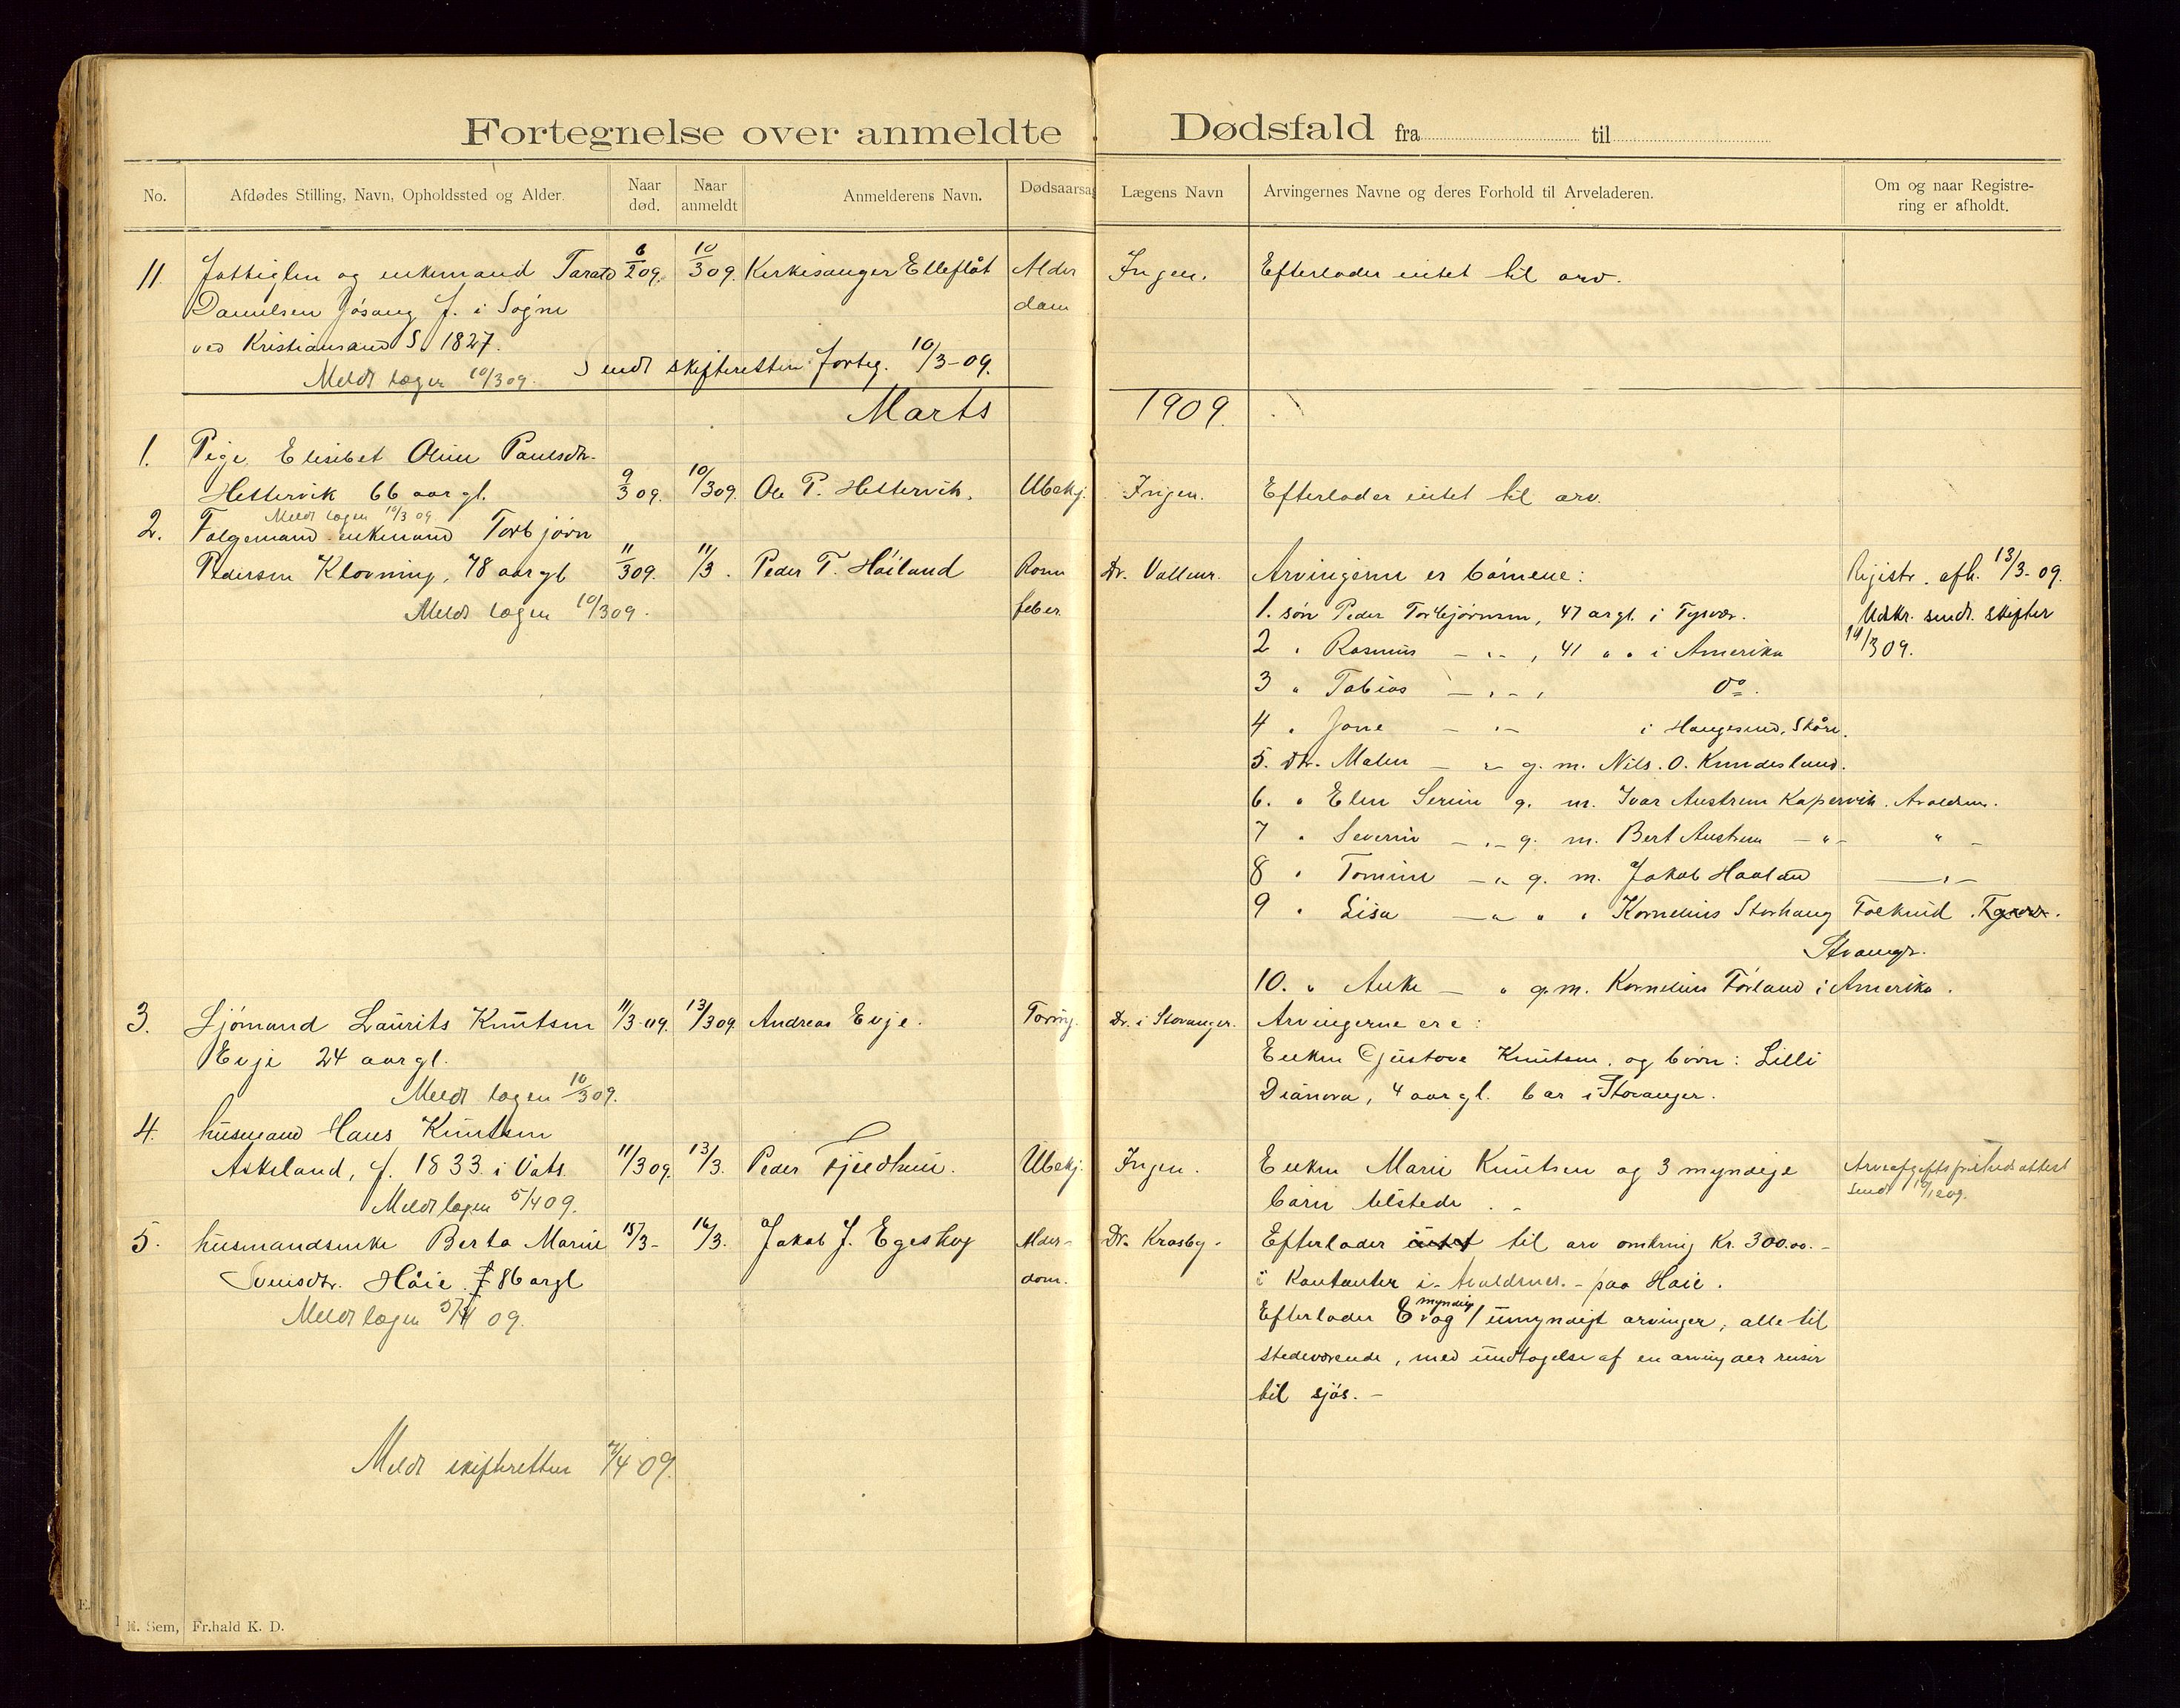 Fortegnelse over anmeldte Dødsfald fra til
No. Afdødes Stilling, Navn, Opholdssted og Alder. Naar død. Naar anmeldt Anmelderens Navn. Dødsaarsag Lægens Navn Arvingernes Navne og deres Forhold til Arveladeren. Om og naar Registrering er afholdt.
11. og enkemand Tarald 6/2 09. 10/3 09. Kirkesanger Elleflåt Alder Ingen. Efterlader intet til arv.
Danielsen Jøsang f. i Søgne dom
ved Kristiansand S. 1827.
Meldt lægen 10/3 09. Sendt skifteretten forteg. 10/3-09.
Marts 1909.
1. Pige Elisabet Oline Paulsdtr.
Hettervik 66 aar gl. 9/3 09. 10/3 09. Ole P. Hettervik. Ubekj. Ingen. Efterlader intet til arv.
Meldt lægen 10/3 09
2. Følgemand enkemand Torbjørn
Pedersen Klovning, 78 aar gl 11/3 09. 11/3. Peder T. Høiland Rosen Dr. Arvingerne er børnene: Registr. afh. 13/3-09.
Meldt lægen 10/3 09. feber 1. søn Peder Torbjørnsen, 47 ar gl. i Tysvær. Udskr. sendt skifter
2 " Rasmus - " - , 41 " " i Amerika 14/3 09.
3 " Tobias - " - , do.
4 " Jone - " - i Haugesund, Skåre.
5. dtr. Malen - " - g. m. Nils. O. Knudesland.
6. " Elen Serine g. m. Ivar Austrem Kopervik. Avaldsnes.
7 " Severin - " - g. m. Bert Austrem - " - " -
8 " Tomine - " g. m. Jakob Haaland - " -
9 " Lisa - " " " Kornelius Storhaug Tysvær.
Stvangr.
10. " Anke - " g. m. Kornelius Førland i Amerika.
3. Sjømand Laurits Knutsen 11/3-09. 13/3 09. Andreas Evje. Tæring. Dr. i Stavanger. Arvingerne ere:
Evje 24 aar gl. Enken Gustava Knutsen. og børn: Lilli
Meldt lægen 10/3 09. Dianora, 4 aar gl. bor i Stavanger.
4. husmand Hans Knutsen
Askeland, f. 1833 i Vats 11/3 09. 13/3. Peder Fjeldheim. Ubekj. Ingen. Enken Marie Knutsen og 3 myndige Arveafgiftsfrihedsattest
Meldt lægen 5/4 09. børn tilstede. - Sendt
5. husmandsenke Berta Marie 15/3- 16/3. Jakob J. Egeskog Alder- Dr. Krosby. Efterlader intet til arv omkring Kr. 300.00.-
Svensdtr. Høie. 86 ar gl dom. i Kontanter i Avaldsnes. - paa Høie.
Meldt lægen 5/4 09. Efterlader 8 myndige og 1 umyndigt arvinger, alle til
stedeværende, med undtagelse af en arving der reiser
til sjøs. -
Meldt skifteretten 7/4 09.
E. Sem, Fr.hald K. D.